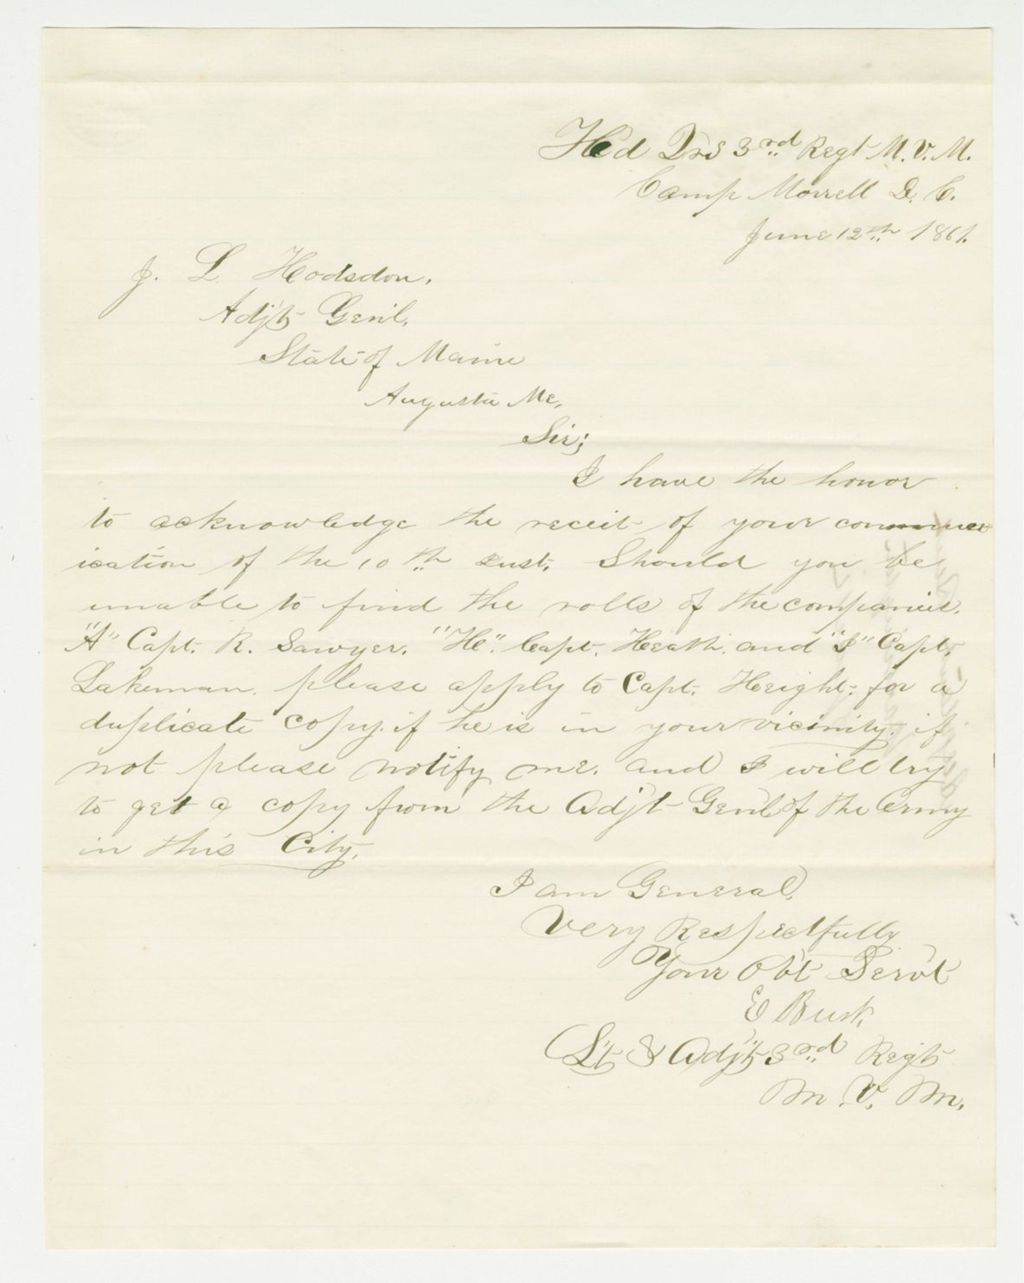 Hed Qrs 3rd Regt M. V. M.
Camp Morrell D. C.
June 12th 1861.
J. L Hodsdon.
Adjt Genl.
State of Maine
Augusta Me.
Sir;
I have the honor
to acknowledge the receit of your commun
ication of the 10th Inst. Should you be
unable to find the rolls of the companies.
"A" Capt. R. Sawyer. "H". Capt. Heath. and "I" Capt
Lakeman. please apply to Capt. Height. for a
duplicate copy. if he is in your vicinity. if
not please notify me. and I will try
to get a copy from the Adjt Genl of the Army
in this City.
I am General,
Very Respectfully
Your Obt Servt
E Burt.
Lt & Adjt 3rd Regt
M. V. M.